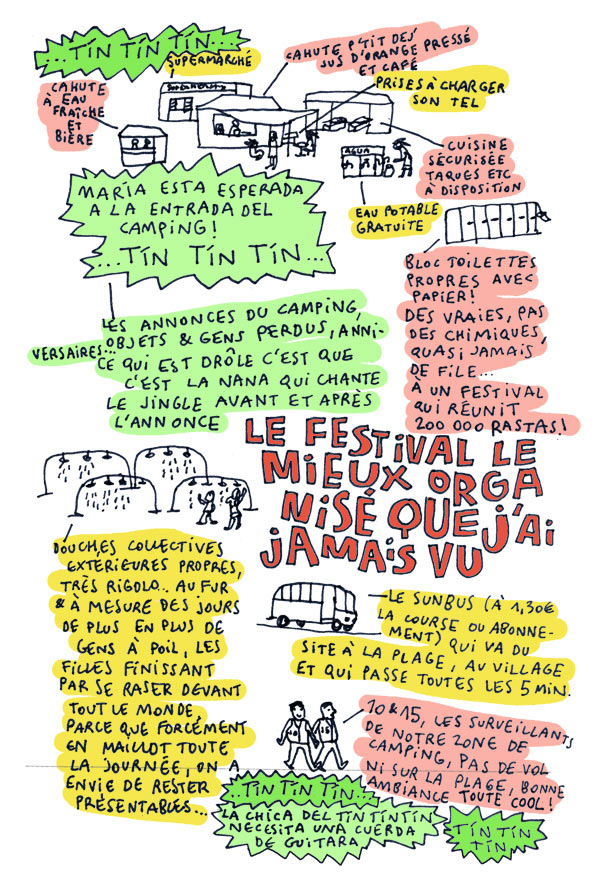 ...TÍN TÍN TÍN...
SUPERMARCHÉ
CAHUTE P'TIT DEJ'
JUS D'ORANGE PRESSÉ
ET CAFÉ
PRISES À CHARGER
SON TEL
CAHUTE
À EAU
FRAÎCHE
ET
BIÈRE
AGUA
CUISINE
SÉCURISÉE
TAQUES ETC
À DISPOSITION
EAU POTABLE
GRATUITE
MARÍA ESTA ESPERADA
A LA ENTRADA DEL
CAMPING!
...TÍN TÍN TÍN...
BLOC TOILETTES
PROPRES AVEC
PAPIER!
DES VRAIES, PAS
DES CHIMIQUES,
QUASI JAMAIS
DE FILE...
À UN FESTIVAL
QUI RÉUNIT
200 000 RASTAS!
LES ANNONCES DU CAMPING,
OBJETS & GENS PERDUS, ANNI-
VERSAIRES...
CE QUI EST DRÔLE C'EST QUE
C'EST LA NANA QUI CHANTE
LE JINGLE AVANT ET APRÈS
L'ANNONCE
LE FESTIVAL LE
MIEUX ORGA
NISÉ QUE J'AI
JAMAIS VU
DOUCHES COLLECTIVES
EXTERIEURES PROPRES,
TRÈS RIGOLO.. AU FUR
& À MESURE DES JOURS
DE PLUS EN PLUS DE
GENS À POIL, LES
FILLES FINISSANT
PAR SE RASER DEVANT
TOUT LE MONDE,
PARCE QUE FORCÉMENT
EN MAILLOT TOUTE
LA JOURNÉE, ON A
ENVIE DE RESTER
PRÉSENTABLES...
LE SUNBUS (À 1,30€
LA COURSE OU ABONNE-
MENT) QUI VA DU
SITE À LA PLAGE, AU VILLAGE
ET QUI PASSE TOUTES LES 5 MIN.
10 & 15, LES SURVEILLANTS
DE NOTRE ZONE DE
CAMPING, PAS DE VOL
NI SUR LA PLAGE, BONNE
AMBIANCE TOUTE COOL!
...TÍN TÍN TÍN...
LA CHICA DEL TÍN TÍN TÍN
NECESITA UNA CUERDA
DE GUITARA
TÍN TÍN
TÍN